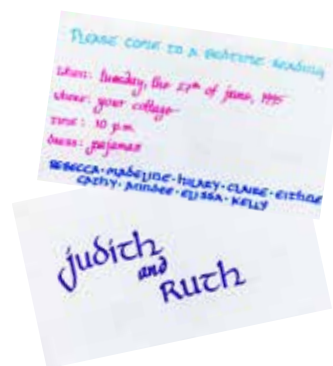 PLEASE COME TO A BEDTIME READING
when: tuesday, the 27th of june, 1995
where: your cottage
time: 10 p.m.
dress: pajamas
REBECCA · MADELINE · HILARY · CLAIRE · EITHNE
CATHY · MINDEE · ELISSA · KELLY
judith
and
RUTH